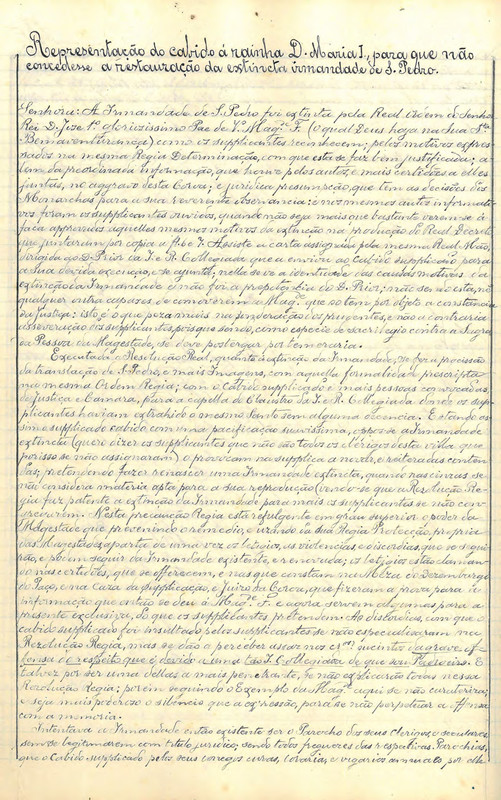 Representação do cabido á rainha D. Maria I, para que não
concedesse a restauração da extincta irmandade de S. Pedro.
Senhora: A Irmandade de S. Pedro foi extinta pela Real ordem do Senhor
Rei D. Joze 1º gloriozissimo Pae de V. Magᵉ F. (o qual Deus haja na Sua Sᵗᵃ
Bemaventurança) como os supplicantes reconhecem; pelos motivos expres-
sados na mesma Regia Determinação, com que esta se faz bem justificada; a-
lem da informação, que houve pelos autos, e mais certidões a elles
juntas, no aggravo desta Coroa; e juridica presumpção, que tem as decisões dos
Monarchas para a sua reverente observancia: e nos mesmos autos informati-
vos foram os supplicantes ouvidos, quando não seja mais que bastante verem-se á
face approvados aquelles mesmos motivos da extincção na producção do Real Decreto
que juntaram por copia a fl. 6 e 7. Assiste a carta assignada pela mesma Real Mão,
dirigida ao D. Prior da I. e R. Collegiada que a enviou ao cabido supplicado para
a sua devida execução, e se ajunta; nella se ve a identidade das causas motivas da
extincção da Irmandade e não foi a proposição do D. Prior; não sendo esta, nem
qualquer outra capazes, de comoverem a Magᵉ que so tem por objeto a constancia
da justiça: isto é o que peza mais na ponderação dos prudentes, e não a contraria
asseveração dos supplicantes pois que sendo, como especie de sacrilegio contra a Sagra-
da Pessoa da Magestade, se deve postergar por temeraria.
Executada a Resolução Real, quanto á extincção da Irmandade, se fez a procissão
da translação de S. Pedro, e mais Imagens, com aquella formalidade prescripta
na mesma Ordem Regia; com o Cabido supplicado e mais pessoas convocadas,
de justiça e Camara, para a capella do Claustro da I. e R. Collegiada donde os sup-
plicantes haviam extrahido o mesmo Santo sem alguma licencia. E estando as-
sim o supplicado cabido com uma pacificação suavissima, oppoz-se a Irmandade
extincta (quero dizer os supplicantes que não são todos os clerigos desta villa, que
por isso se não assignaram) o provocam na supplica a novas, e reiteradas conten-
das; pretendendo fazer renascer uma Irmandade extincta, quando nas cinzas se
não considera materia apta para a sua reproducção (vendo-se que a Rezolução Re-
gia fez patente a extincção da Irmandade para mais os supplicantes se não con-
gregarem. Nesta precaução Regia está refulgente em grau superior o poder da
Magestade que prevenindo o remedio, e uzando da sua Regia Protecção, propria
das Magestades, aparta de uma vez os litigios, as violencias e discordias, que se segui-
rão, e podem seguir da Irmandade existente, e renovada; os litigios estão claman-
do nas certidões, que se offerecem, e nas que constam na Meza do Dezembargo
do Paço, e na Caza da Supplicação, e Juizo da Coroa, que fizeram a prova para a
informação que então se deu á Magᵉ F. e agora servem algumas para a
presente exclusiva, do que os supplicantes pretendem. As discordias, com que o
cabido supplicado foi insultado pelos supplicantes se não especialisaram na
Rezolução Regia, mas se dão a perceber assas nos quesitos da grave of-
fensa do respeito que é devido a uma tão I. Collegiada de que sou Padroeiro. E
talvez por ser uma dellas a mais penetrante, se não explicarão todas nessa
Rezolução Regia; porem seguindo o Exemplo da Magᵉ aqui se não cauterisa;
e seja mais poderozo o silencio que a expressão, para se não perpetuar a offensa
com a memoria.
Intentava a Irmandade então existente ser o Parocho dos seus Clerigos, e seculares
sem se legitimarem com titulo juridico; sendo todos freguezes das respectivas Parochias,
que o Cabido supplicado pelos seus conegos curas, e vigarios annuais por elle